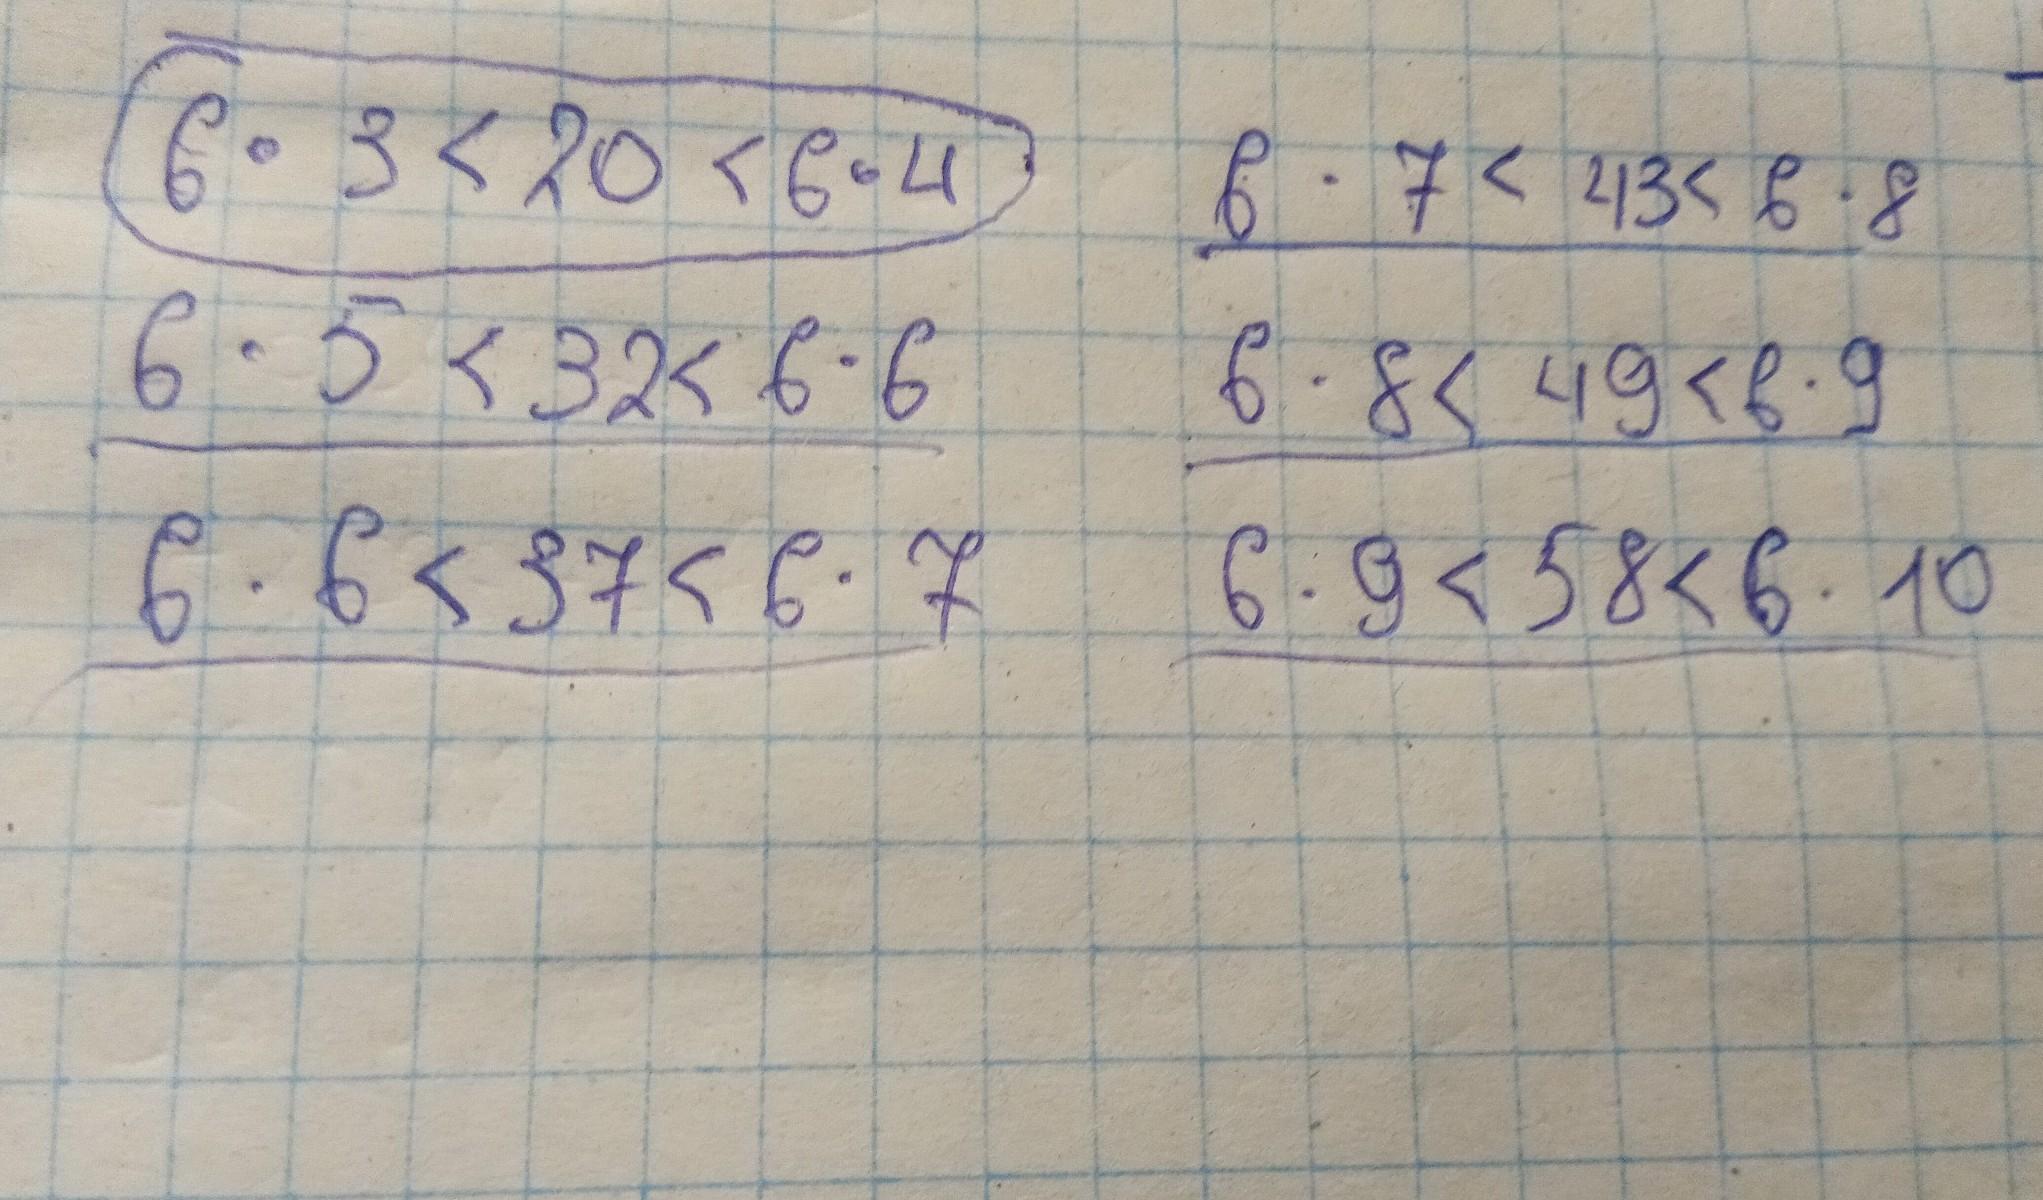 6 · 3 < 20 < 6 · 4
6 · 5 < 32 < 6 · 6
6 · 6 < 37 < 6 · 7
6 · 7 < 43 < 6 · 8
6 · 8 < 49 < 6 · 9
6 · 9 < 58 < 6 · 10